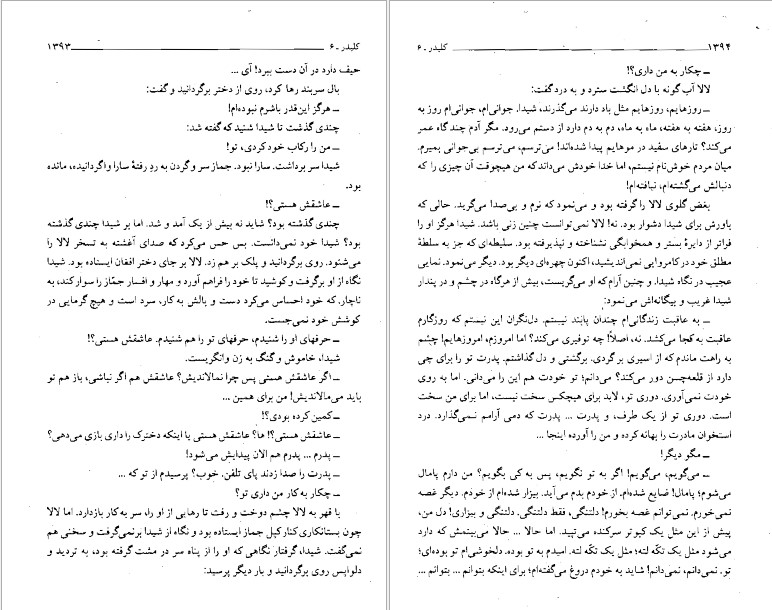 کلیدر ـ ۶ ۱۳۹۳
حیف دارد در آن دست ببرد! آی ...
بال سربند رها کرد، روی از دختر برگردانید و گفت:
ـ هرگز این‌قدر باشرم نبوده‌ام!
چندی گذشت تا شیدا شنید که گفته شد:
ـ من را رکاب خود کردی، تو!
شیدا سر برداشت. سارا نبود. جماز سر و گردن به ردِ رفتهٔ سارا واگردانیده، مانده
بود.
ـ عاشقش هستی؟!
چندی گذشته بود؟ شاید نه بیش از یک آمد و شد. اما بر شیدا چندی گذشته
بود؟ شیدا خود نمی‌دانست. پس حس می‌کرد که صدای آغشته به تسخر لالا را
می‌شنود. روی برگردانید و پلک بر هم زد. لالا بر جای دختر افغان ایستاده بود. شیدا
نگاه از او برگرفت و کوشید تا خود را فراهم آورد و مهار و افسار جمّاز را سوار کند، به
ناچار، که خود احساس می‌کرد دست و بالش به کار، سرد است و هیچ گرمایی در
کوشش خود نمی‌جست.
ـ حرفهای او را شنیدم، حرفهای تو را هم شنیدم. عاشقش هستی؟!
شیدا، خاموش و گنگ به زن وانگریست.
ـ اگر عاشقش هستی پس چرا نمالاندیش؟ عاشقش هم اگر نباشی، باز هم تو
باید می‌مالاندیش! من برای همین ...
ـ کمین کرده بودی؟!
ـ عاشقش هستی؟! ها؟ عاشقش هستی یا اینکه دخترک را داری بازی می‌دهی؟
ـ پدرم ... پدرم هم الان پیدایش می‌شود!
ـ پدرت را صدا زدند پای تلفن. خوب؟ پرسیدم از تو که ...
ـ چکار به کار من داری تو؟
با قهر به لالا چشم دوخت و رفت تا رهایی از او را، سر به کار بازدارد. اما لالا
چون بستانکاری کنار کپل جماز ایستاده بود و نگاه از شیدا برنمی‌گرفت و سخنی هم
نمی‌گفت. شیدا، گرفتار نگاهی که او را از پناه سر در مشت گرفته بود، به تردید و
دلواپس روی برگردانید و بار دیگر پرسید:
۱۳۹۴ کلیدر ـ ۶
ـ چکار به من داری؟!
لالا آب‌گونه با دل انگشت سترد و به درد گفت:
ـ روزهایم، روزهایم مثل باد دارند می‌گذرند، شیدا. جوانی‌ام، جوانی‌ام روز به
روز، هفته به هفته، ماه به ماه، دم به دم دارد از دستم می‌رود. مگر آدم چند گاه عمر
می‌کند؟ تارهای سفید در موهایم پیدا شده‌اند! می‌ترسم، می‌ترسم بی‌جوانی بمیرم.
میان مردم خوش‌نام نیستم، اما خدا خودش می‌داند که من هیچوقت آن چیزی را که
دنبالش می‌گشته‌ام، نیافته‌ام!
بغض گلوی لالا را گرفته بود و می‌نمود که نرم و بی‌صدا می‌گرید. حالی که
باورش برای شیدا دشوار بود. نه! لالا نمی‌توانست چنین زنی باشد. شیدا هرگز او را
فراتر از دایرهٔ بستر و همخوابگی نشناخته و نپذیرفته بود. سلیطه‌ای که جز به سلطهٔ
مطلق خود در کامروایی نمی‌اندیشید، اکنون چهره‌ای دیگر بود. دیگر می‌نمود. نمایی
عجیب در نگاه شیدا. و چنین آرام که او می‌گریست، بیش از هرگاه در چشم و در پندار
شیدا غریب و بیگانه‌اش می‌نمود:
ـ به عاقبت زندگانی‌ام چندان پابند نیستم. دل‌نگران این نیستم که روزگارم
عاقبت به کجا می‌کشد. نه، اصلاً! چه توفیری می‌کند؟ اما امروزم، امروزهایم! چشم
به راهت ماندم که از اسیری برگردی. برگشتی و دل گذاشتم. پدرت تو را برای چی
دارد از قلعه‌چمن دور می‌کند؟ می‌دانم؛ تو خودت هم این را می‌دانی. اما به روی
خودت نمی‌آوری. دوری تو، لابد برای هیچکس سخت نیست، اما برای من سخت
است. دوری تو از یک طرف، و پدرت ... پدرت که دمی آرامم نمی‌گذارد. درد
استخوان مادرت را بهانه کرده و من را آورده اینجا ...
ـ مگو دیگر!
ـ می‌گویم، می‌گویم! اگر به تو نگویم، پس به کی بگویم؟ من دارم پامال
می‌شوم؛ پامال! ضایع شده‌ام. از خودم بدم می‌آید. بیزار شده‌ام از خودم. دیگر غصه
نمی‌خورم. نمی‌توانم غصه بخورم! دلتنگی، فقط دلتنگی. دلتنگی و بیزاری! دل من،
پیش از این مثل یک کبوتر سرکنده می‌تپید. اما حالا ... حالا می‌بینمش که دارد
می‌شود مثل یک تکّه لته؛ مثل یک تکّه لته. امیدم به تو بوده. دلخوشی‌ام تو بوده‌ای؛
تو. نمی‌دانم، نمی‌دانم! شاید به خودم دروغ می‌گفته‌ام؛ برای اینکه بتوانم ... بتوانم ...